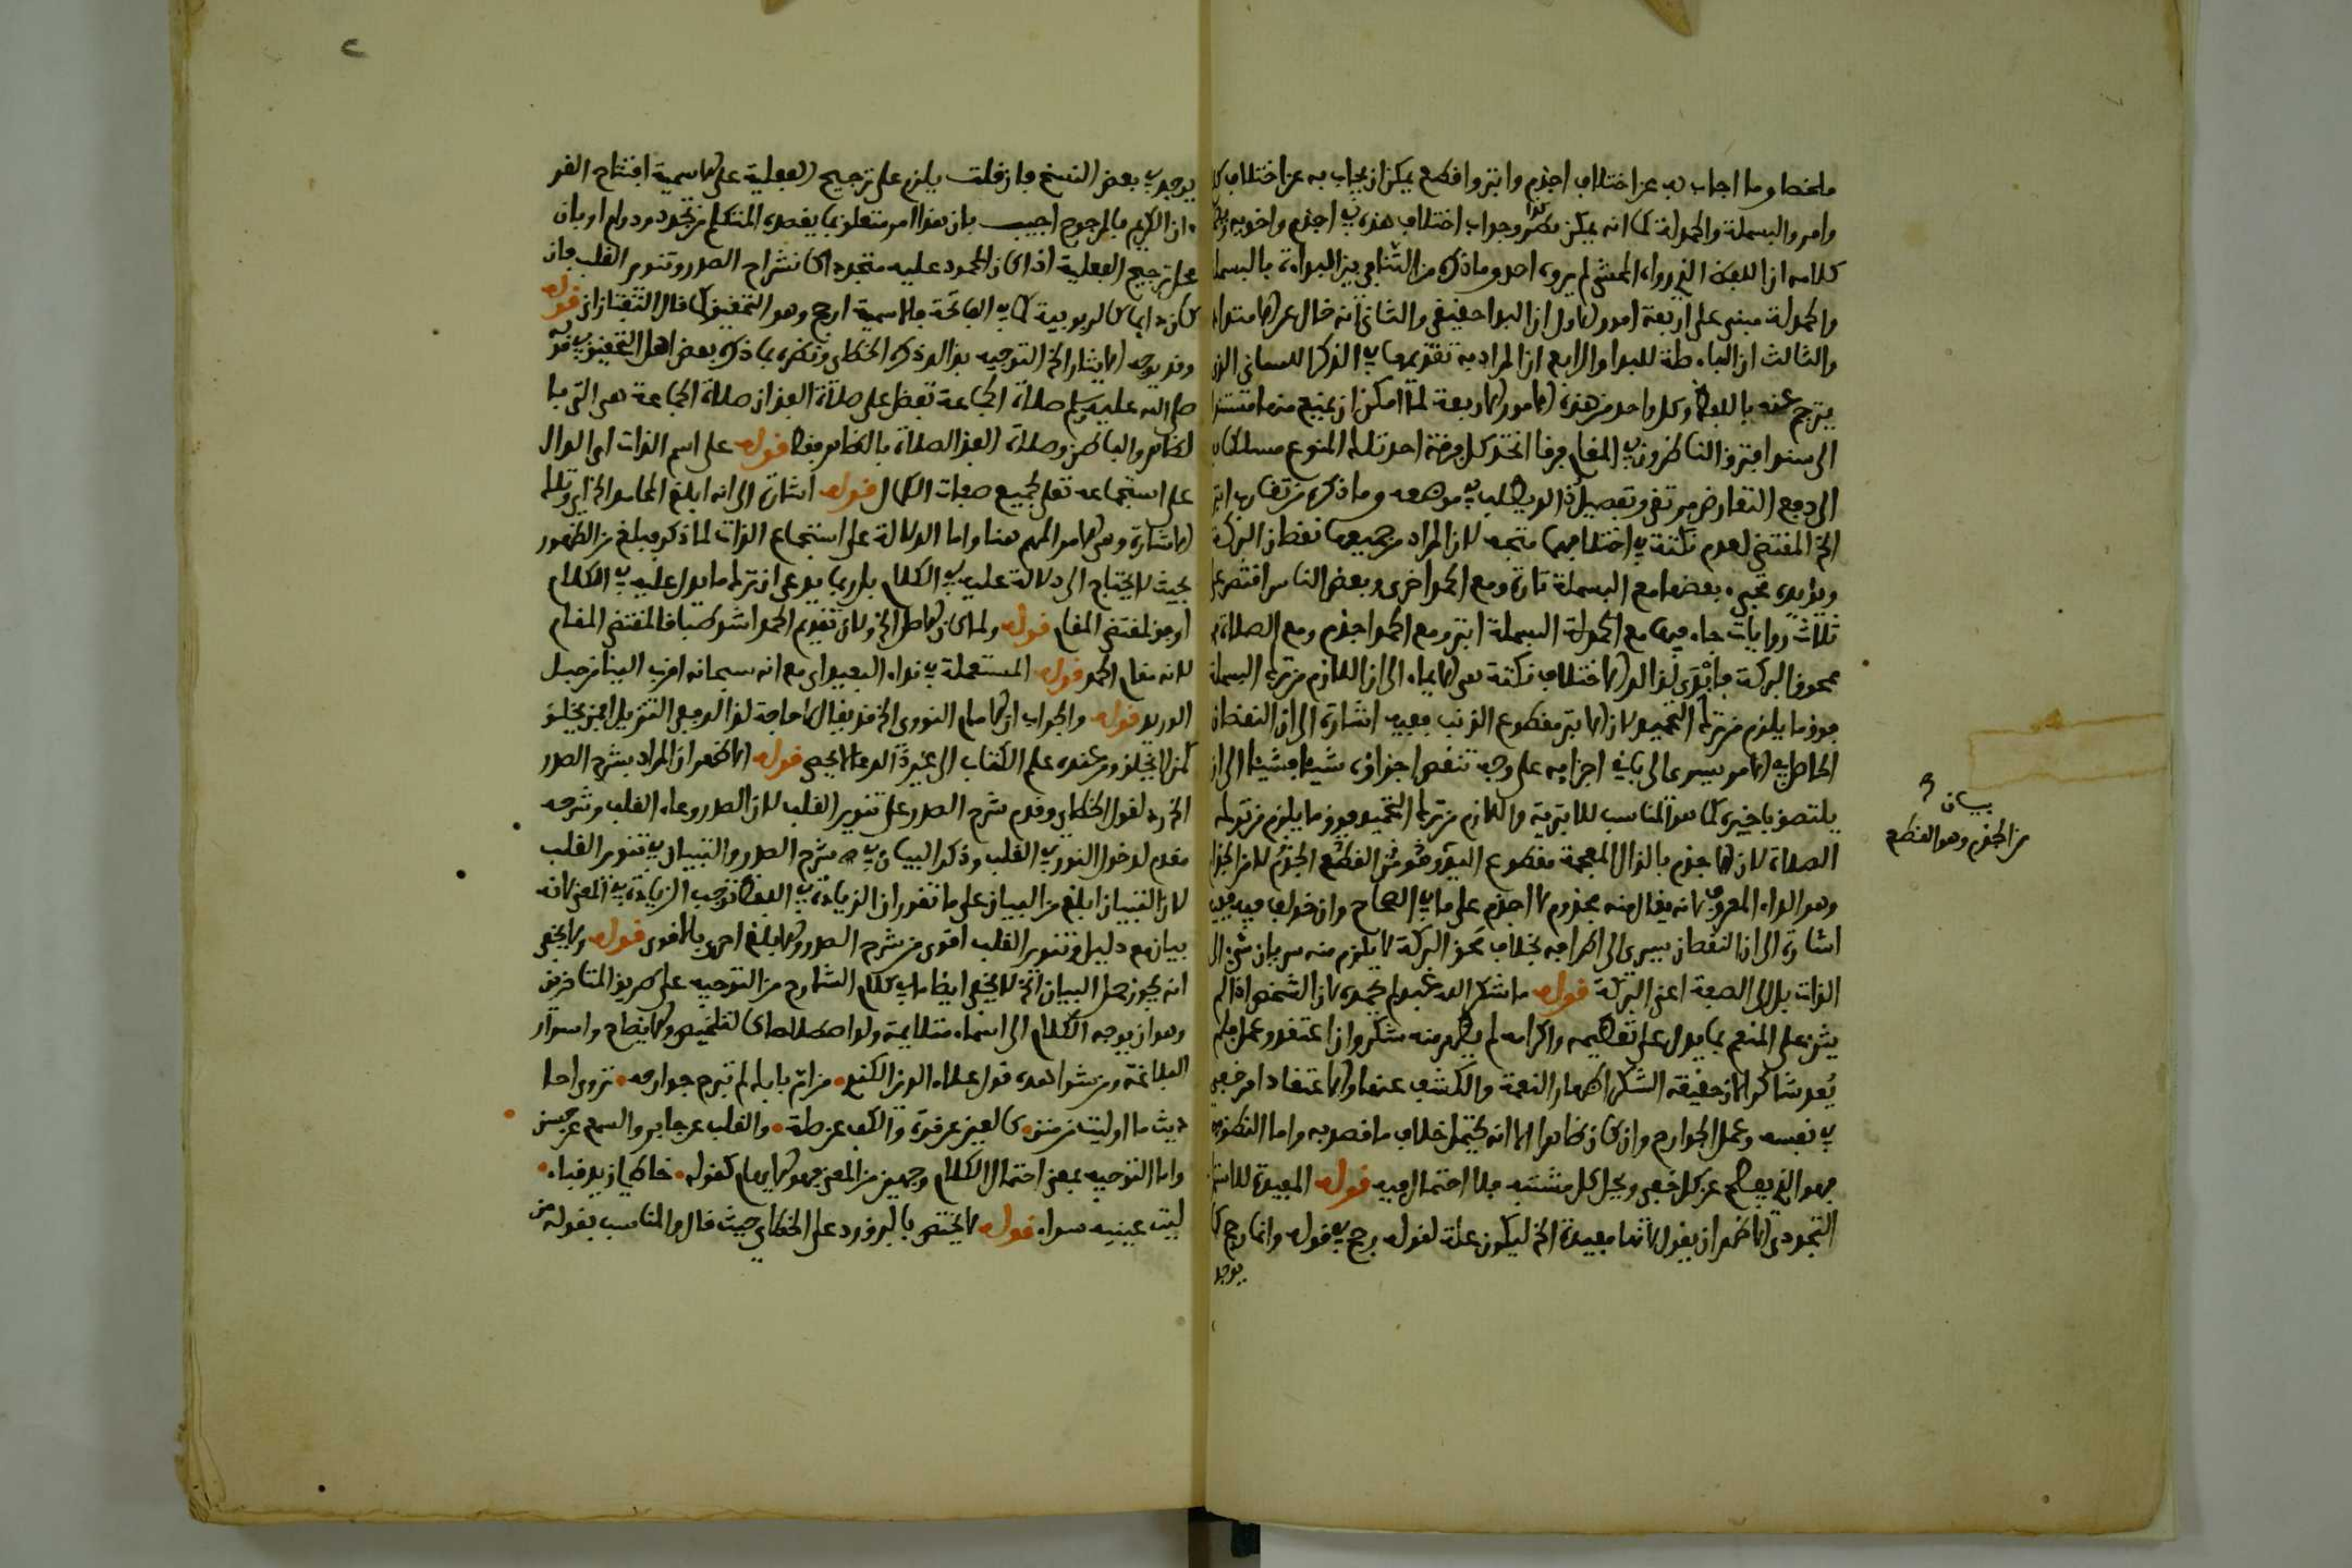 ملخصا وما اجاب به عن اختلاف اجذم وابتر واقطع يمكن ان يجاب به عن اختلاف
وامر والبسملة والحمدلة كما انه يمكن جواب اختلاف هذه في اجذم واخويه
كلامه ان اللفظ الذي رواه المحشي لم يروه احد وما ذكره من التنافي بين البداءة بالبسملة
والحمدلة مبني على اربعة امور الاول ان البدا حقيقي والثاني انه خال عن الامتداد
والثالث ان الباء صلة للبدا والرابع ان المراد به تقديمها في الذكر اللساني الذي
يترجم عنه باللفظ وكل واحد من هذه الامور الاربعة لما امكن ان يمنع منها مستندا
الى سند افترق الناظرون في المقام فرقا اتخذ كل فرقة احد تلك المنوع مسلكا
الى دفع التعارض وتفصيل ذلك يطلب في موضعه وما ذكره من تقارب
الخ المقتضي لعدم نكتة في اختلافها متجه لان المراد من جميعها نقصان البركة
ويؤيده مجيء بعضها مع البسملة تارة ومع الحمد اخرى وبعض الناس اقتصر على
ثلاث روايات جاء فيها مع الحمدلة البسملة ابتر ومع الحمد اجذم ومع الصلاة
ممحوق البركة فابدى لذلك الاختلاف نكتة هي الايماء الى ان اللازم من ترك البسملة
فوق ما يلزم من ترك التحميد لان الابتر مقطوع الذنب ففيه اشارة الى ان النقصان
الحاصل في الامر يسري الى باقي اجزايه على وجه تنقص اجزاؤه شيئا فشيئا الى ان
يلتصق باخيره كما هو المناسب للابترية واللازم من ترك التحميد فوق ما يلزم من ترك
الصلاة لان الاجذم بالذال المعجمة مقطوع اليد وهو من القطع الجذم لا من الجذام
وهو الداء المعروف لانه يقال منه مجذوم لا اجذم على ما في الصحاح وان خولف فيه ففيه
اشارة الى ان النقصان يسري الى اطرافه بخلاف محق البركة لا يلزم منه سريان شيء الى
الذات بل الى الصفة اعني البركة قوله ما شكر الله عبد لم يحمده لان الشخص اذا لم
يثن على المنعم بما يدل على تعظيمه واكرامه لم يظهر منه شكر وان اعتقد وعمل فلم
يعد شاكرا لان حقيقة الشكر اظهار النعمة والكشف عنها والاعتقاد امر خفي
في نفسه وعمل الجوارح وان كان ظاهرا الا انه يحتمل خلاف ما قصد به واما النطق
فهو الذي يفصح عن كل خفي ويجلي كل مشتبه فلا احتمال فيه قوله المفيدة للاستمرار
التجددي الاظهر ان يقول لانها مفيدة الخ ليكون علة لقوله رجح في قوله وانما رجح
يوجد
بيان
من الجذم وهو القطع
يوجد في بعض النسخ فان قلت يلزم على ترجيح الفعلية على الاسمية افتتاح القر
ءان الكريم بالمرجوح اجيب بان هذا امر متعلق بما يقصده المتكلم من تجدد ودوام او بان
محل ترجيح الفعلية اذا كان المحمود عليه متجددا كانشراح الصدر وتنوير القلب فان
كان دايما كالربوبية كما في الفاتحة فالاسمية ارجح وهو التحقيق كما قال التفتازاني قوله
وقد يوجه الايثار الخ التوجيه بذلك ذكره الخطابي ونظيره ما ذكره بعض اهل التحقيق في قوله
صلى الله عليه وسلم صلاة الجماعة تفضل على صلاة الفذ ان صلاة الجماعة هي التي با
لظاهر والباطن وصلاة الفذ الصلاة بالظاهر فقط قوله على اسم الذات اى الدال
على استجماعه تعلى لجميع صفات الكمال قوله اشارة الى انه ابلغ المحامد الخ اى وتلك
الاشارة وهي الامر المهم هنا واما الدلالة على استجماع الذات لما ذكر فبلغ من الظهور
بحيث لا يحتاج الى دلالة عليه في الكلام بل ربما يدعى ان ترك ما يدل عليه في الكلام
اوفق لمقتضى المقام قوله ولما كان الاصل الخ ولان تقديم الحمد اشد طباقا لمقتضى المقام
لانه مقام الحمد قوله المستعملة في نداء البعيد اى مع انه سبحانه اقرب الينا من حبل
الوريد قوله والجواب ان الامام النووي الخ قد يقال لا حاجة لذلك ففي التنزيل افمن يخلق
كمن لا يخلق ومن عنده علم الكتاب الى غير ذلك مما لا يحصى قوله الاظهر ان المراد بشرح الصدر
الخ رد لقول الخطابي وقدم شرح الصدر على تنوير القلب لان الصدر وعاء القلب وشرحه
مقدم لدخول النور في القلب وذكر البيان في شرح الصدر والتبيان في تنوير القلب
لان التبيان ابلغ من البيان على ما تقرر ان الزيادة في اللفظ توجب الزيادة في المعنى لانه
بيان مع دليل وتنوير القلب اقوى من شرح الصدر والابلغ احرى بالاقوى قوله ولا يخفى
انه يجوز حمل البيان الخ لا يخفى ايضا ما في كلام الشارح من التوجيه على طريق المتاخرين
وهو ان يوجه الكلام الى اسماء متلايمة ولو اصطلاحا كالتلخيص والايضاح واسرار
البلاغة ومن شواهده قول علاء الدين الكندي من ام بابك لم تبرح جوارحه تروي احا
ديث ما اوليت من منن فالعين عن قرة والكف عن صلة والقلب عن جابر والسمع عن حسن
واما التوجيه بمعنى احتمال الكلام وجهين من المعنى فهو الايهام كقوله خاط لي زيد قباء
ليت عينيه سواء قوله لا يختص بالبرورد على الخطابي حيث قال والمناسب بقوله من